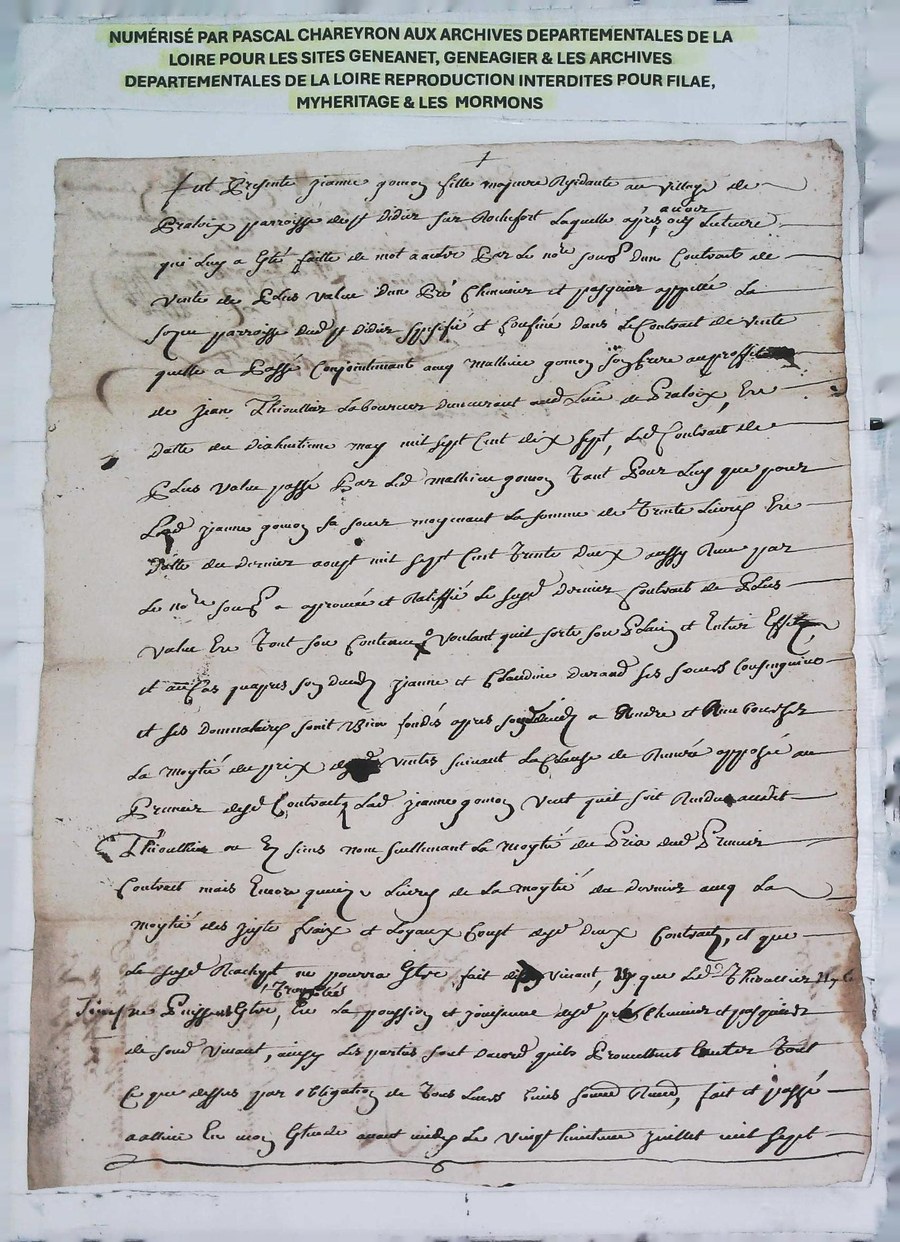 NUMÉRISÉ PAR PASCAL CHAREYRON AUX ARCHIVES DEPARTEMENTALES DE LA
LOIRE POUR LES SITES GENEANET, GENEAGIER & LES ARCHIVES
DEPARTEMENTALES DE LA LOIRE REPRODUCTION INTERDITES POUR FILAE,
MYHERITAGE & LES MORMONS
fut presente jeanne gomon fille majeure residante au village de
praloix parroisse de st didier sur Rochefort laquelle apres avoir ouy lecture
qui luy a esté faitte de mot a autre par le nore sousé dun contract de
vente de plus value dun pré chenevier et pasquier appellé la
parroisse dud st didier spesifié et confiné dans le contract de vente
quelle a passé conjointemant avec mathieu gomon son frere au proffit
de jean Thioullier laboureur demeurant aud lieu de praloix, en
datte du dixhuitieme may mil sept cent dix sept, led contract de
plus value passé par led mathieu gomon tant pour luy que pour
lad jeanne gomon sa soeur moyenant la somme de trente livres en
datte du dernier aoust mil sept cent trente deux aussy receu par
le nore sousé a aprouvé et ratiffié le susd dernier contract de plus
value en tout son contenu voulant quil sorte son plain et entier effet
et au cas quapres son deces jeanne et claudine durand ses soeurs consinguine
et ses donnataires soint bien fondés apres son deces a rendre et rembourser
la moytié du prix desd ventes suivant la clause de reméré apposée au
premier desd contracts lad jeanne gomon veut quil soit rendu audit
Thioullier ou es siens non seullemant la moytié du prix dud premier
contract mais encore quinze livres de la moytié du dernier avec la
moytié des juste fraix et loyaux coust desd deux contracts, et que
le susd rachapt ne pourra estre fait de son vivant, ny que led Thioullier ny les
siens ne puissent estre troublés en la possession et jouissance desd pré chenevier et pasquier
de sond vivant, ainsy les parties sont dacord quils promettent tout
ce que dessus par obligation de tous leurs biens soumd renond, fait et passé
en mon estude avant midy le vingt huitieme juillet mil sept